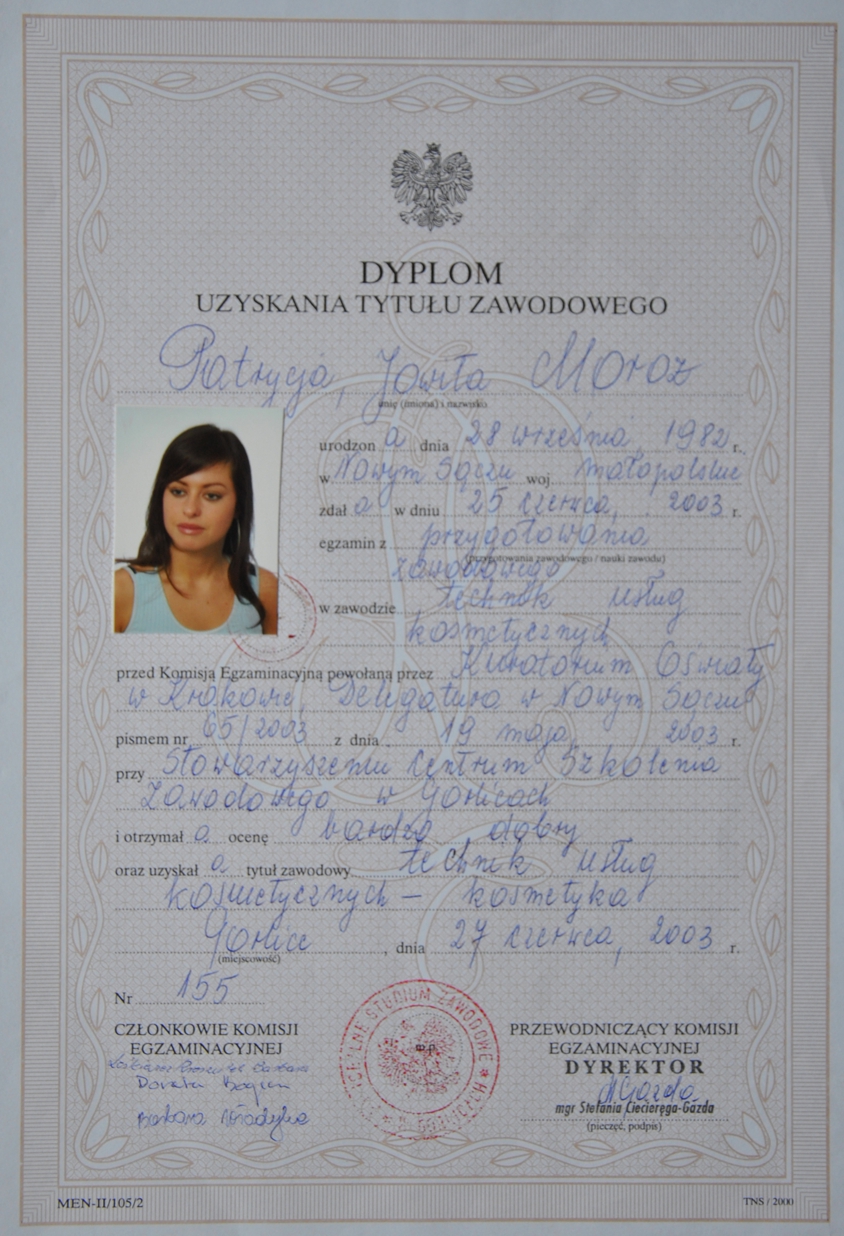 DYPLOM
UZYSKANIA TYTUŁU ZAWODOWEGO
Patrycja, Jowita Moroz
imię (imiona) i nazwisko
urodzon a dnia 28 września, 1982 r.,
w Nowym Sączu woj. małopolskie
zdał a w dniu 25 czerwca, 2003 r.
egzamin z przygotowania
(przygotowania zawodowego / nauki zawodu)
zawodowego
w zawodzie technik usług
kosmetycznych
przed Komisją Egzaminacyjną powołaną przez Kuratorium Oświaty
w Krakowie, Delegatura w Nowym Sączu
pismem nr 65/2003 z dnia 19 maja, 2003 r.
przy Stowarzyszeniu Centrum Szkolenia
Zawodowego w Gorlicach
i otrzymał a ocenę bardzo dobry
oraz uzyskał a tytuł zawodowy technik usług
kosmetycznych – kosmetyka
Gorlice, dnia 27 czerwca, 2003 r.
(miejscowość)
Nr 155
CZŁONKOWIE KOMISJI
EGZAMINACYJNEJ
Barbara
Dorota
Barbara
STUDIUM ZAWODOWE
W GORLICACH
PRZEWODNICZĄCY KOMISJI
EGZAMINACYJNEJ
DYREKTOR
Gazda
mgr Stefania Ciecieręga-Gazda
(pieczęć, podpis)
MEN-II/105/2
TNS / 2000